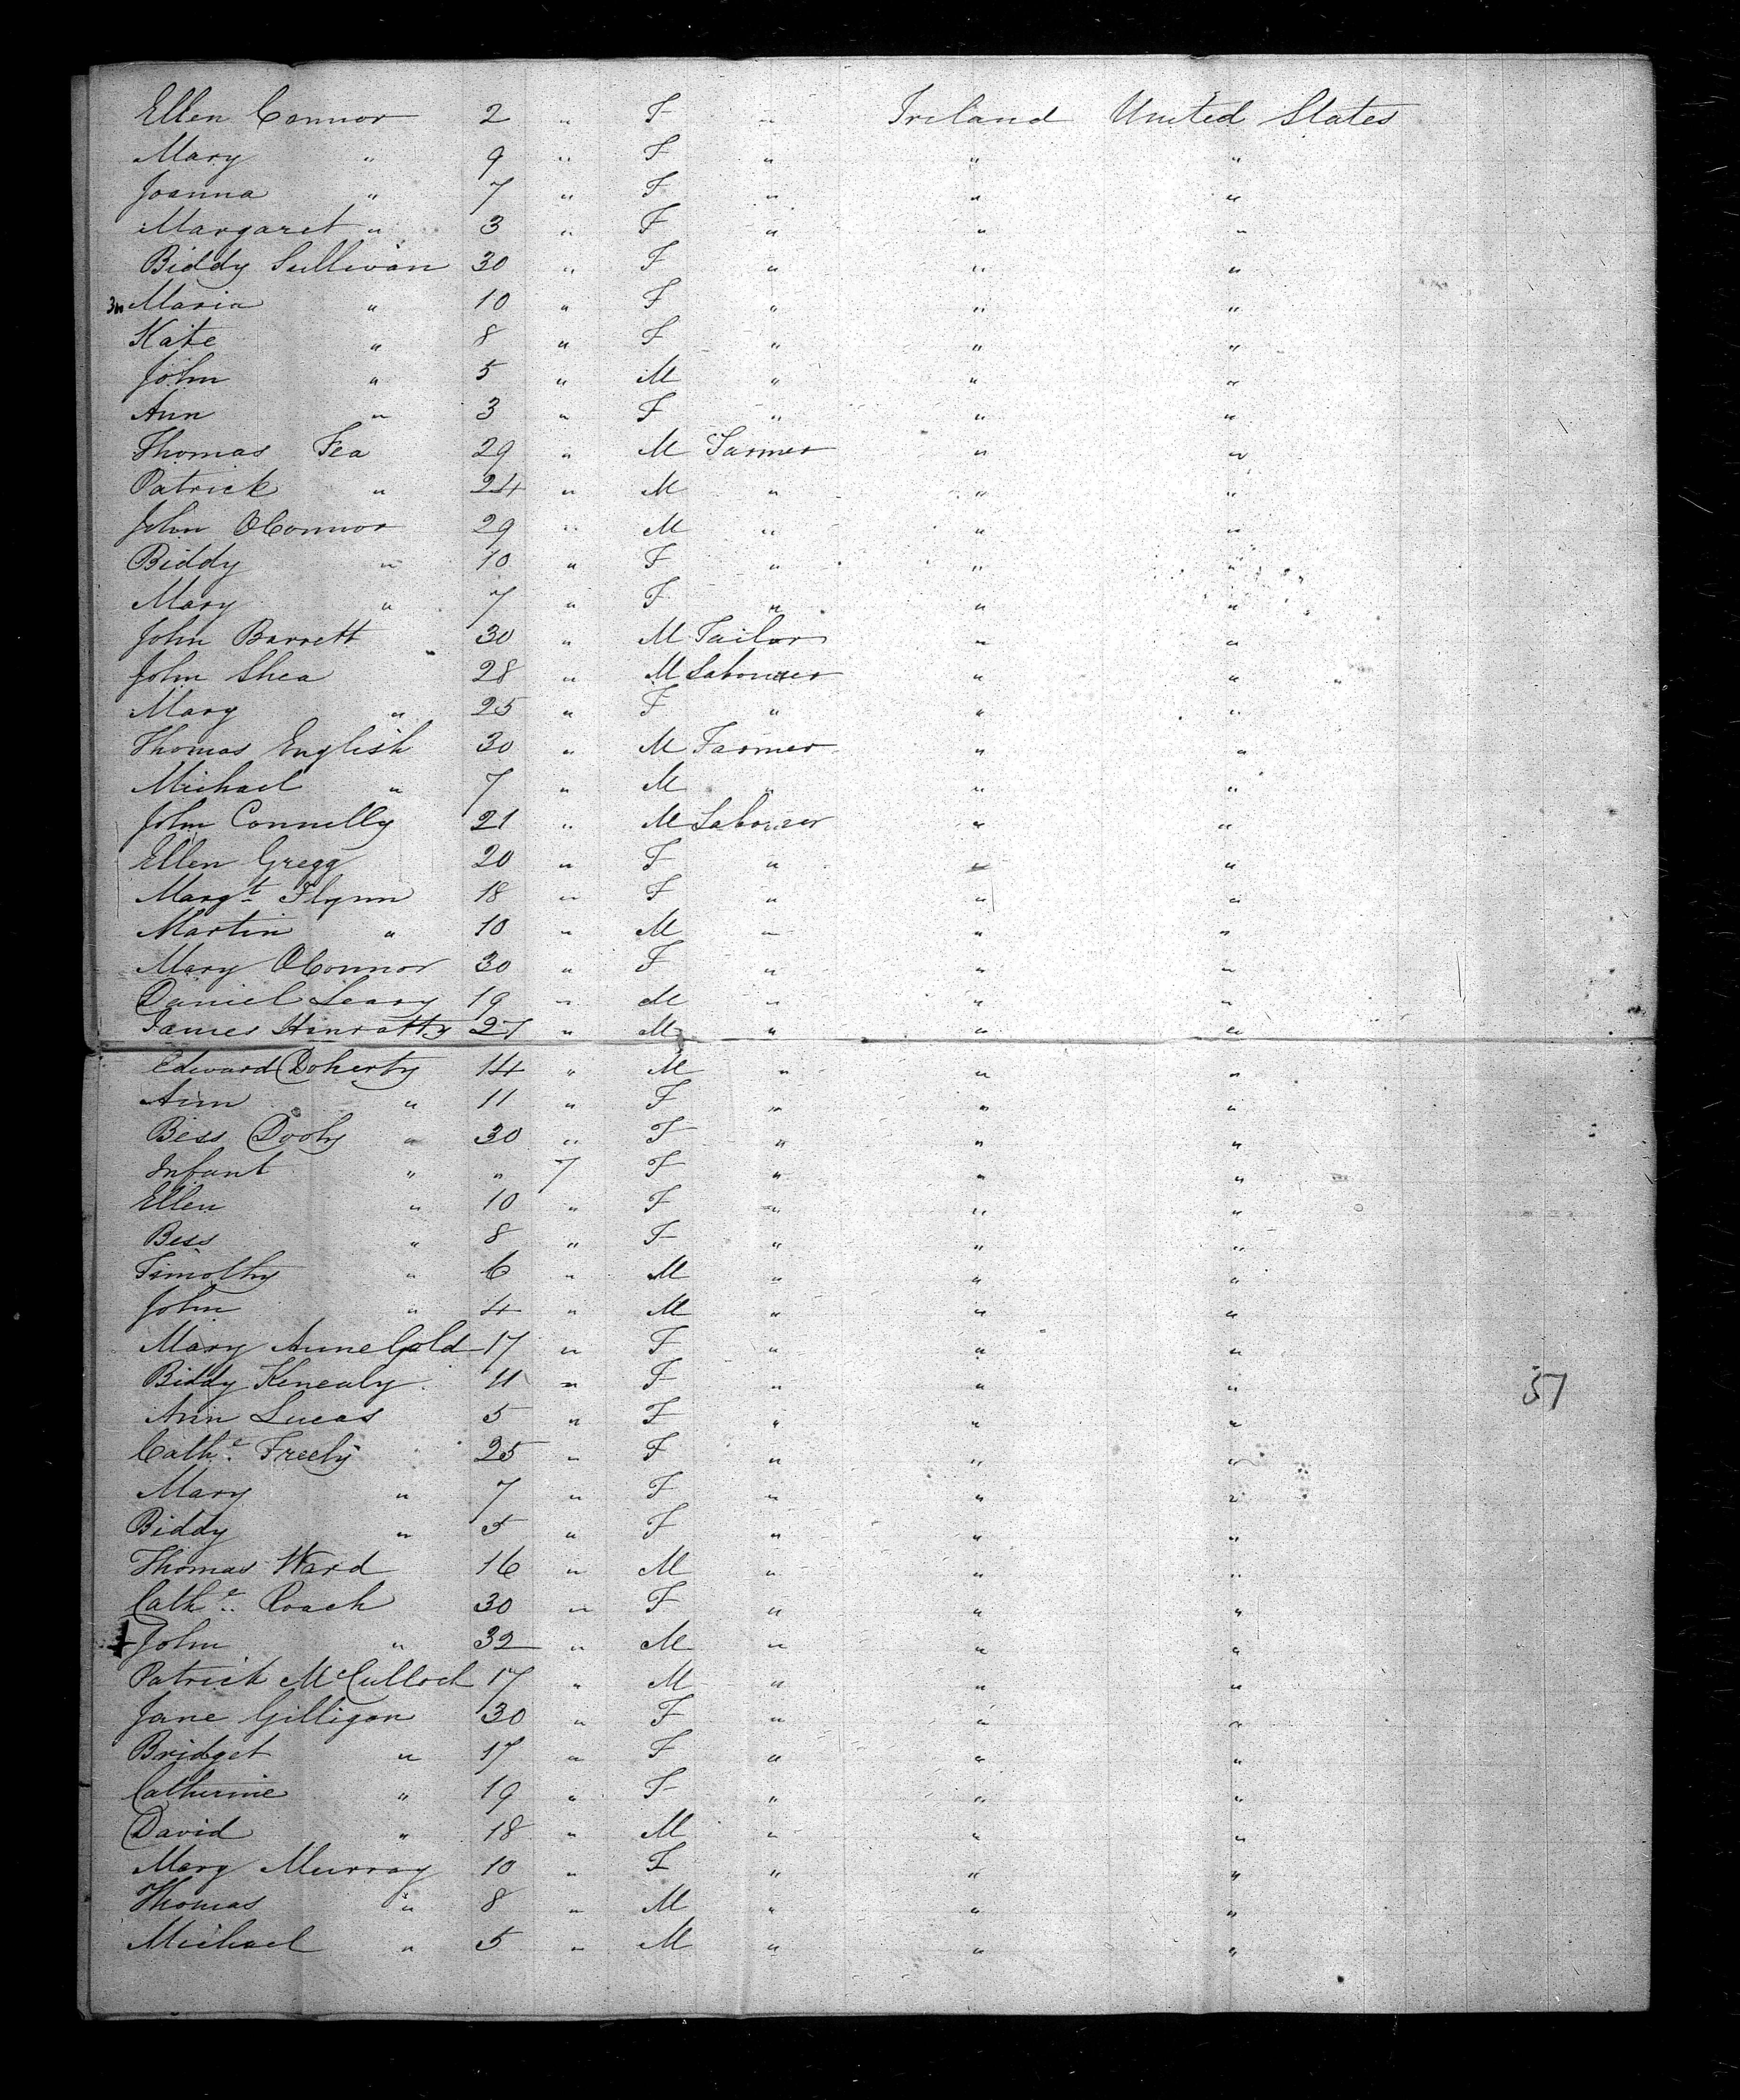 Ellen Connor 2 " F " Ireland United States
Mary " 9 " F " " "
Joanna " 7 " F " " "
Margaret " 3 " F " " "
Biddy Sullivan 30 " F " " "
Maria " 10 " F " " "
Kate " 8 " F " " "
John " 5 " M " " "
Ann " 3 " F " " "
Thomas Fea 29 " M Farmer " "
Patrick " 24 " M " " "
John OConnor 29 " M " " "
Biddy " 10 " F " " "
Mary " 7 " F " " "
John Barrett 30 " M Tailor " "
John Shea 28 " M Labourer " "
Mary " 25 " F " " "
Thomas English 30 " M Farmer " "
Michael " 7 " M " " "
John Connelly 21 " M Labourer " "
Ellen Gregg 20 " F " " "
Margt Flynn 18 " F " " "
Martin " 10 " M " " "
Mary OConnor 30 " F " " "
Daniel Leary 19 " M " " "
James Hinratty 27 " M " " "
Edward Doherty 14 " M " " "
Ann " 11 " F " " "
Bess Dooly " 30 " F " " "
Infant " " 7 F " " "
Ellen " 10 " F " " "
Bess " 8 " F " " "
Timothy " 6 " M " " "
John " 4 " M " " "
Mary Anne Gold 17 " F " " "
Biddy Kenealy 11 " F " " "
Ann Lucas 5 " F " " "
Cathe Freely 25 " F " " "
Mary " 7 " F " " "
Biddy " 5 " F " " "
Thomas Ward 16 " M " " "
Cathe Roach 30 " F " " "
John " 32 " M " " "
Patrick McCulloch 17 " M " " "
Jane Gilligan 30 " F " " "
Bridget " 17 " F " " "
Catherine " 19 " F " " "
David " 18 " M " " "
Mary Murray 10 " F " " "
Thomas " 8 " M " " "
Michael " 5 " M " " "
57